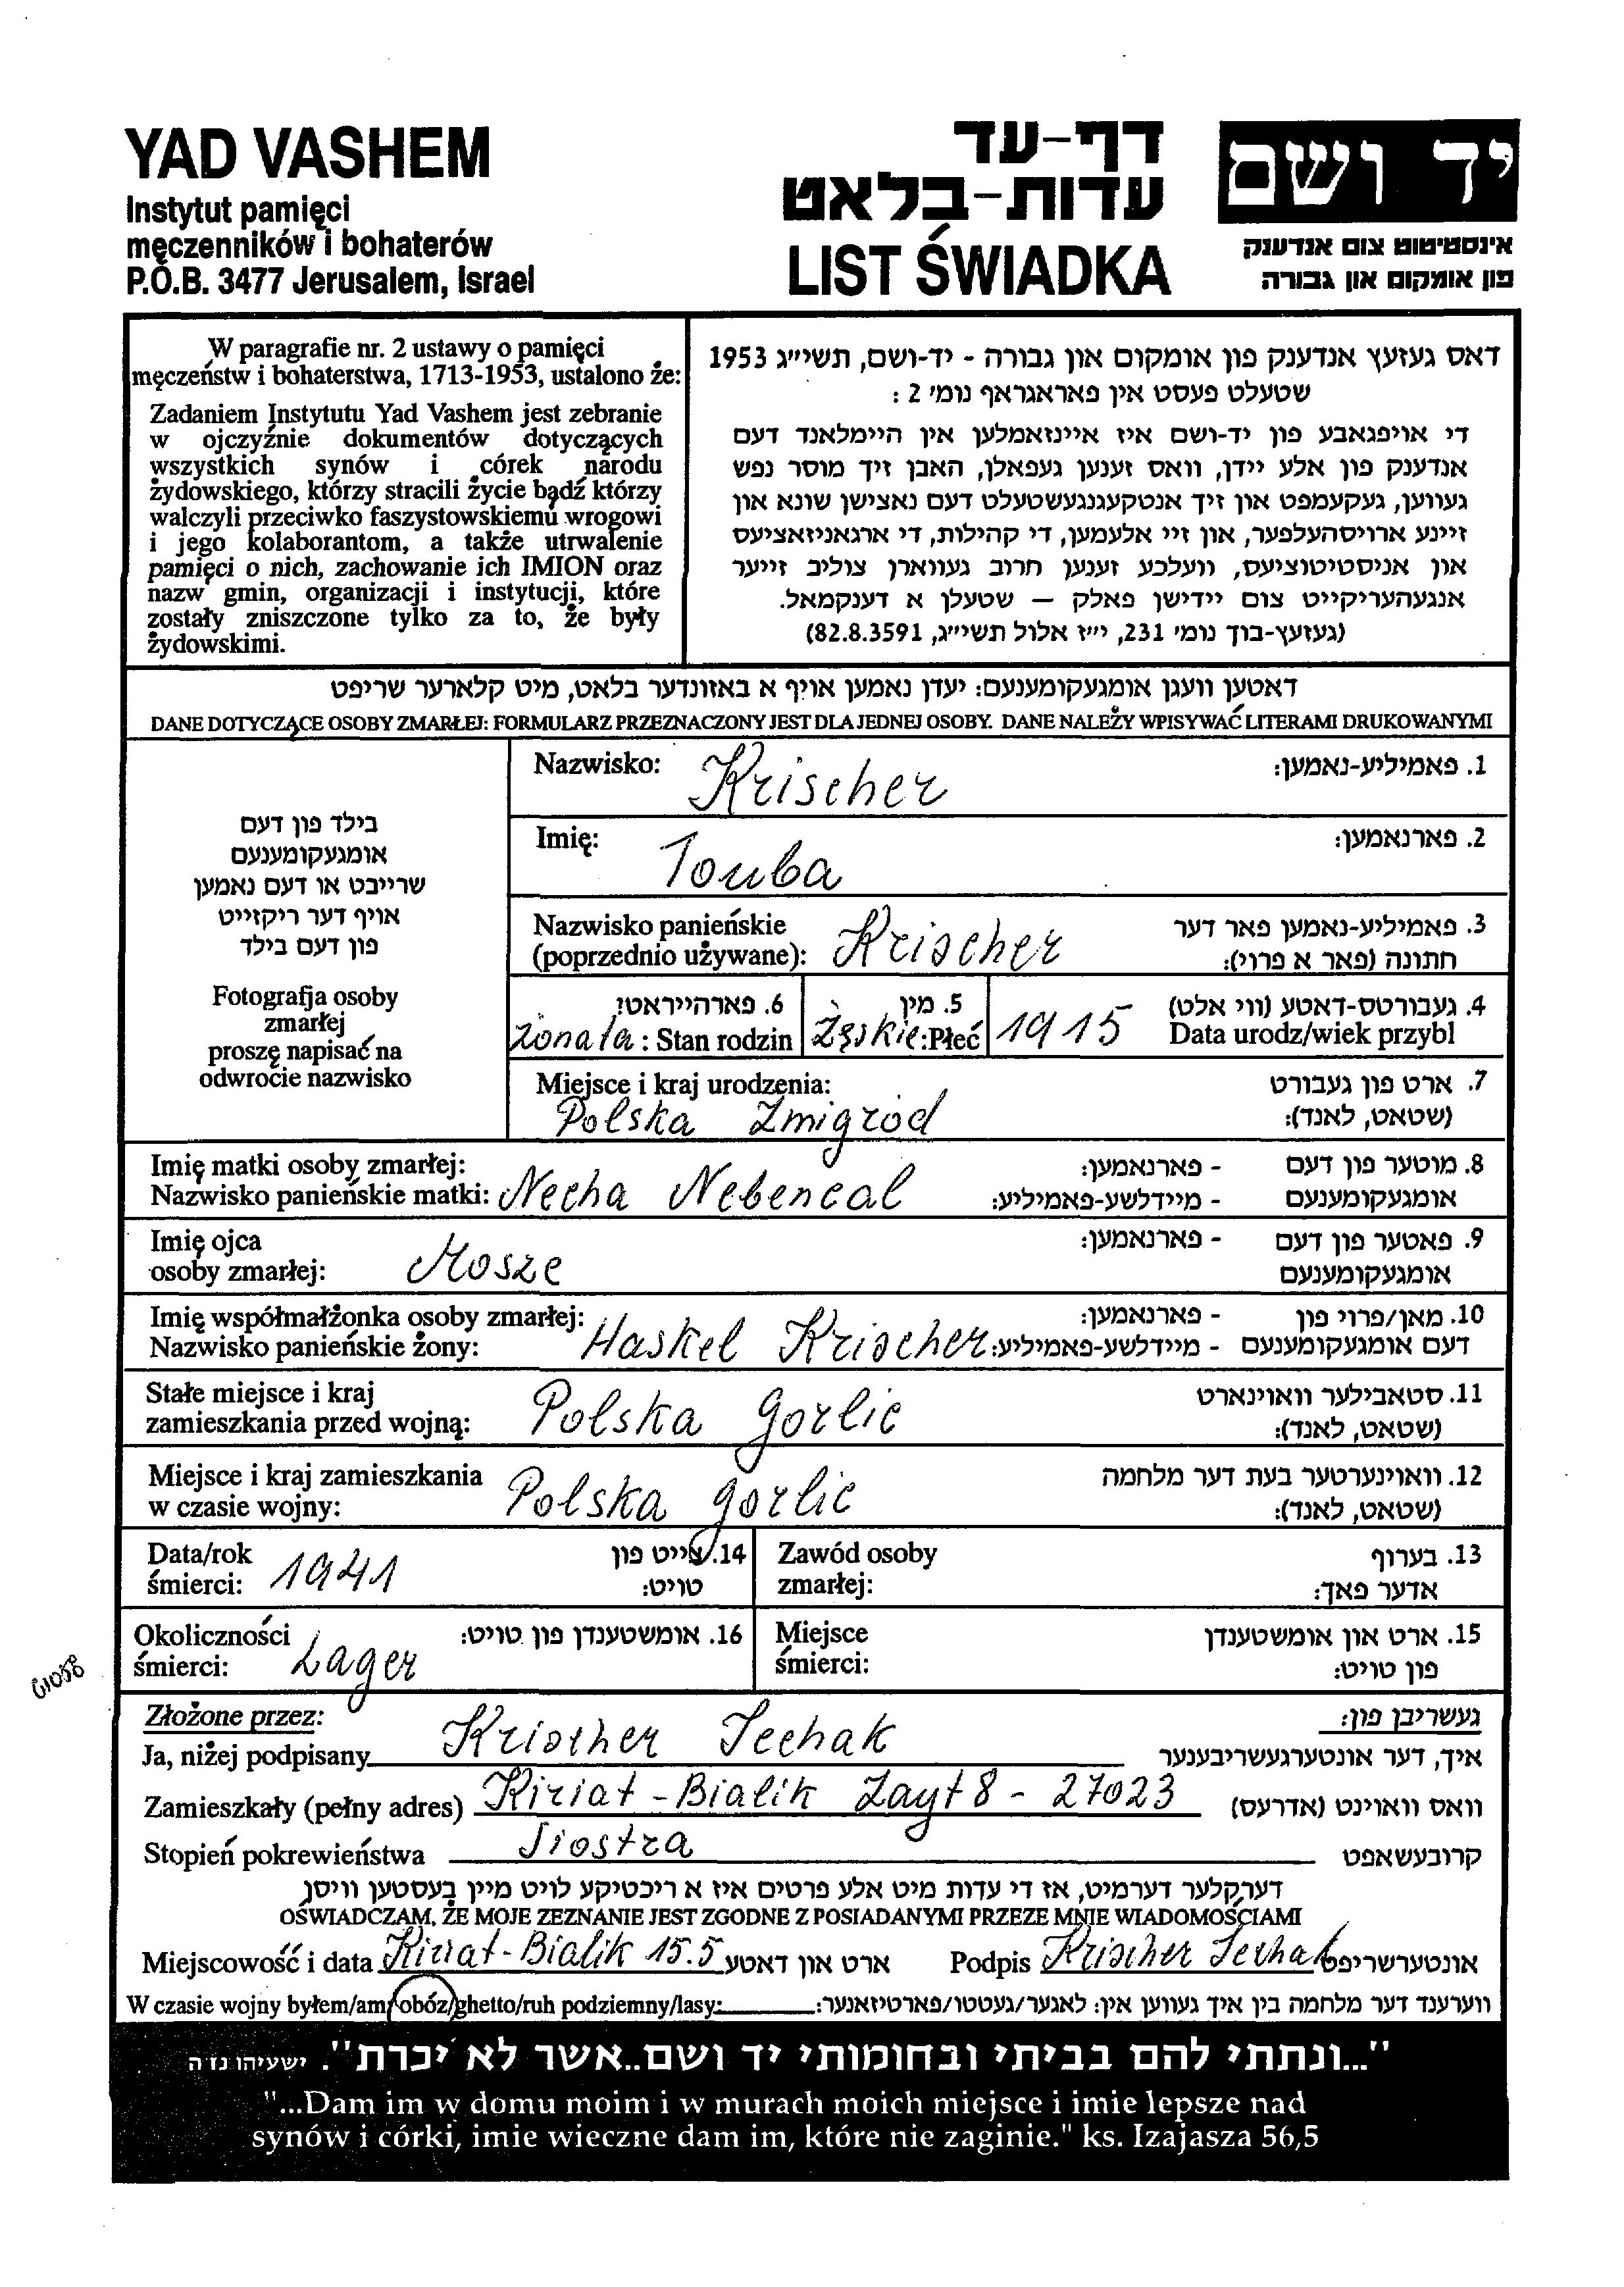 YAD VASHEM
Instytut pamięci
męczenników i bohaterów
P.O.B. 3477 Jerusalem, Israel
דף-עד
עדות-בלאט
LIST ŚWIADKA
יד ושם
אינסטיטוט צום אנדענק
פון אומקום און גבורה
W paragrafie nr. 2 ustawy o pamięci
męczeństw i bohaterstwa, 1713-1953, ustalono że:
Zadaniem Instytutu Yad Vashem jest zebranie
w ojczyźnie dokumentów dotyczących
wszystkich synów i córek narodu
żydowskiego, którzy stracili życie bądź którzy
walczyli przeciwko faszystowskiemu wrogowi
i jego kolaborantom, a także utrwalenie
pamięci o nich, zachowanie ich IMION oraz
nazw gmin, organizacji i instytucji, które
zostały zniszczone tylko za to, że były
żydowskimi.
דאס געזעץ אנדענק פון אומקום און גבורה - יד-ושם, תשי״ג 1953
שטעלט פעסט אין פאראגראף נומ׳ 2 :
די אויפגאבע פון יד-ושם איז איינזאמלען אין היימלאנד דעם
אנדענק פון אלע יידן, וואס זענען געפאלן, האבן זיך מוסר נפש
געווען, געקעמפט און זיך אנטקעגנגעשטעלט דעם נאצישן שונא און
זיינע ארויסהעלפער, און זיי אלעמען, די קהילות, די ארגאניזאציעס
און אניסטיטוציעס, וועלכע זענען חרוב געווארן צוליב זייער
אנגעהעריקייט צום יידישן פאלק — שטעלן א דענקמאל.
(געזעץ-בוך נומ׳ 231, י״ז אלול תשי״ג, 82.8.3591)
דאטען וועגן אומגעקומענעם: יעדן נאמען אויף א באזונדער בלאט, מיט קלארער שריפט
DANE DOTYCZĄCE OSOBY ZMARŁEJ: FORMULARZ PRZEZNACZONY JEST DLA JEDNEJ OSOBY. DANE NALEŻY WPISYWAĆ LITERAMI DRUKOWANYMI
בילד פון דעם
אומגעקומענעם
שרייבט או דעם נאמען
אויף דער ריקזייט
פון דעם בילד
Fotografja osoby
zmarłej
proszę napisać na
odwrocie nazwisko
Nazwisko: Krischer 1. פאמיליע-נאמען:
Imię: Touba 2. פארנאמען:
Nazwisko panieńskie 3. פאמיליע-נאמען פאר דער
(poprzednio używane): Krischer חתונה (פאר א פרוי):
6. פארהייראט: 5. מין 4. געבורטס-דאטע (ווי אלט)
żonata : Stan rodzin Żęskie :Płeć 1915 Data urodz/wiek przybl
Miejsce i kraj urodzenia: 7. ארט פון געבורט
Polska Żmigród (שטאט, לאנד):
Imię matki osoby zmarłej: - פארנאמען: 8. מוטער פון דעם
Nazwisko panieńskie matki: Necha Nebencal - מיידלשע-פאמיליע: אומגעקומענעם
Imię ojca - פארנאמען: 9. פאטער פון דעם
osoby zmarłej: Mosze אומגעקומענעם
Imię współmałżonka osoby zmarłej: - פארנאמען: 10. מאן/פרוי פון
Nazwisko panieńskie żony: Haskel Krischer - מיידלשע-פאמיליע: דעם אומגעקומענעם
Stałe miejsce i kraj 11. סטאבילער וואוינארט
zamieszkania przed wojną: Polska gorlic (שטאט, לאנד):
Miejsce i kraj zamieszkania 12. וואוינערטער בעת דער מלחמה
w czasie wojny: Polska gorlic (שטאט, לאנד):
Data/rok 14. צייט פון Zawód osoby 13. בערוף
śmierci: 1941 טויט: zmarłej: אדער פאך:
Okoliczności 16. אומשטענדן פון טויט: Miejsce 15. ארט און אומשטענדן
śmierci: Lager śmierci: פון טויט:
Złożone przez: געשריבן פון:
Ja, niżej podpisany Krischer Sechak איך, דער אונטערגעשריבענער
Zamieszkały (pełny adres) Kiriat-Bialik Zayt 8 - 27023 וואס וואוינט (אדרעס)
Stopień pokrewieństwa Siostra קרובעשאפט
דערקלער דערמיט, אז די עדות מיט אלע פרטים איז א ריכטיקע לויט מיין בעסטען וויסן
OŚWIADCZAM, ŻE MOJE ZEZNANIE JEST ZGODNE Z POSIADANYMI PRZEZE MNIE WIADOMOŚCIAMI
Miejscowość i data Kiriat-Bialik 15.5 ארט און דאטע Podpis Krischer Sechak אונטערשריפט
W czasie wojny byłem/am/obóz/ghetto/ruh podziemny/lasy: ווערענד דער מלחמה בין איך געווען אין: לאגער/געטטו/פארטיזאנער:
"...ונתתי להם בביתי ובחומותי יד ושם..אשר לא יכרת". ישעיהו נו ה
"...Dam im w domu moim i w murach moich miejsce i imie lepsze nad
synów i córki, imie wieczne dam im, które nie zaginie." ks. Izajasza 56,5